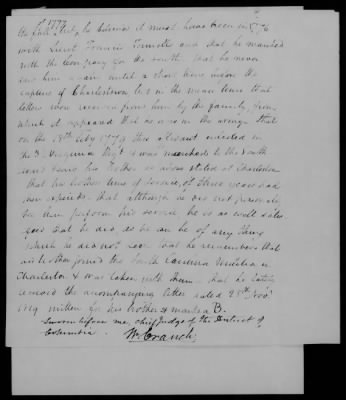 he believes it must have been in 1776
with Lieut Francis and that he marched
with the Company for the south. That he never
saw him again until a short time before the
capture of Charlestown but in the mean time that
letters were received from him by the family, from
which it appeared that he was in the army that
on the 1779 this affiant enlisted in
the Virginia Regt & was marched to the South
his brother as above stated at Charleston
that his brother term of service, of three years had
expired that although he did not personally
see him perform his service, he is as well satis
fied that he did, as he can be of any thing
which he did not see that he remembers that
his brother joined the South Carolina Militia in
Charleston & was taken with them that he
received the accompanying letter dated 25th Novr
written by his brother & marked B.
Sworn before me, chief judge of the District of
Columbia.
W Cranch